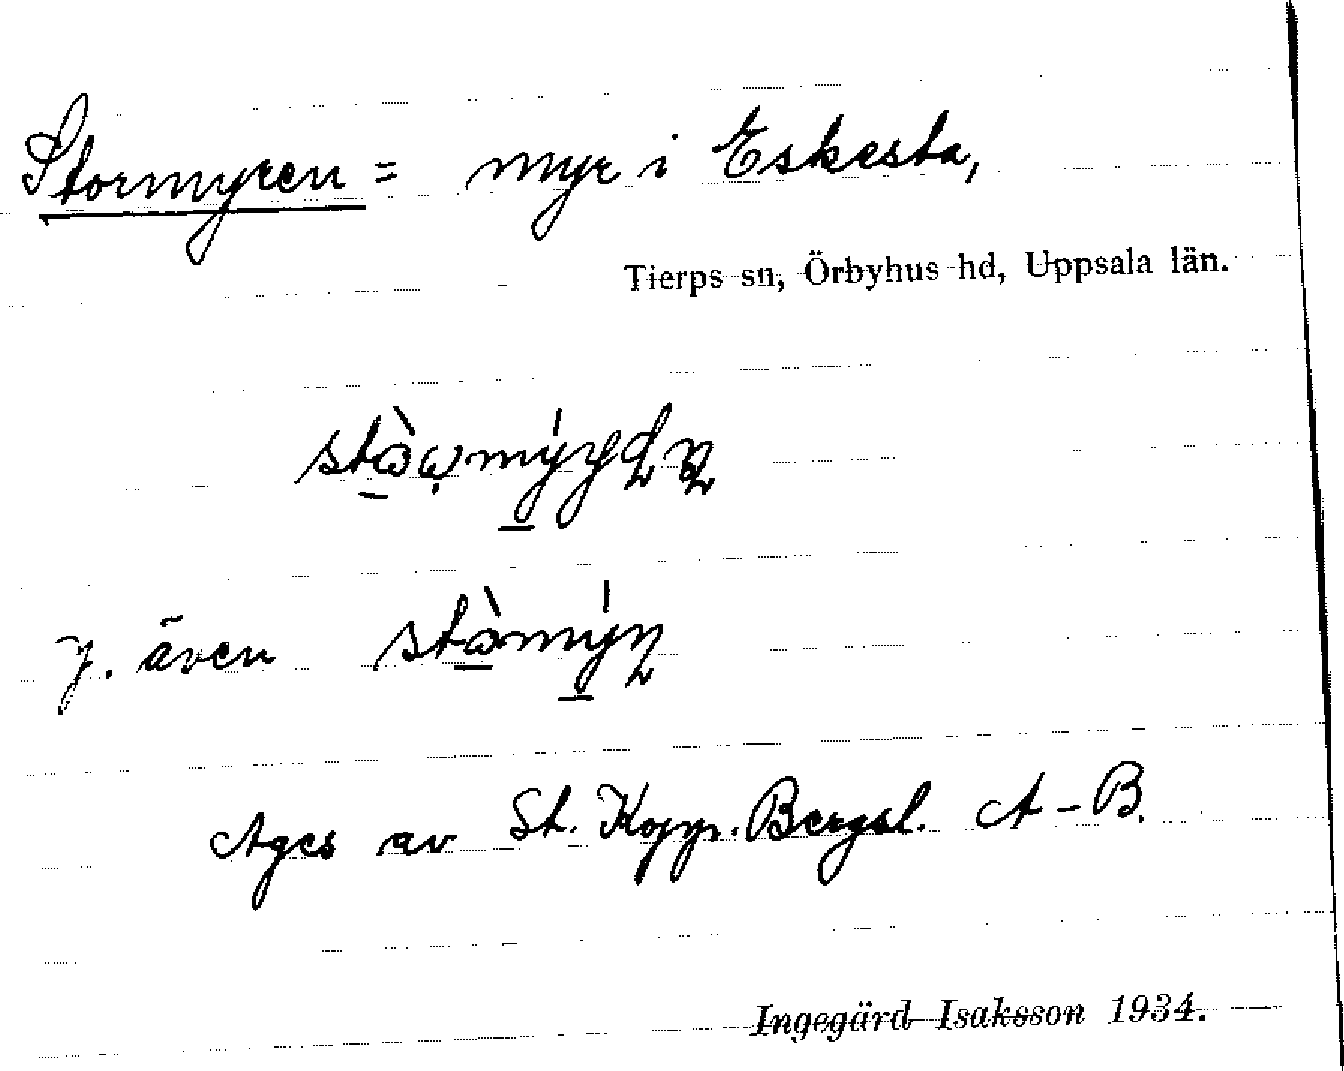 Stormyren = myr i Eskesta,
Tierps sn, Örbyhus hd, Uppsala län.
J. även
Ages av St. Kopp. Bergsl. A-B.
Ingegärd Isaksson 1934.